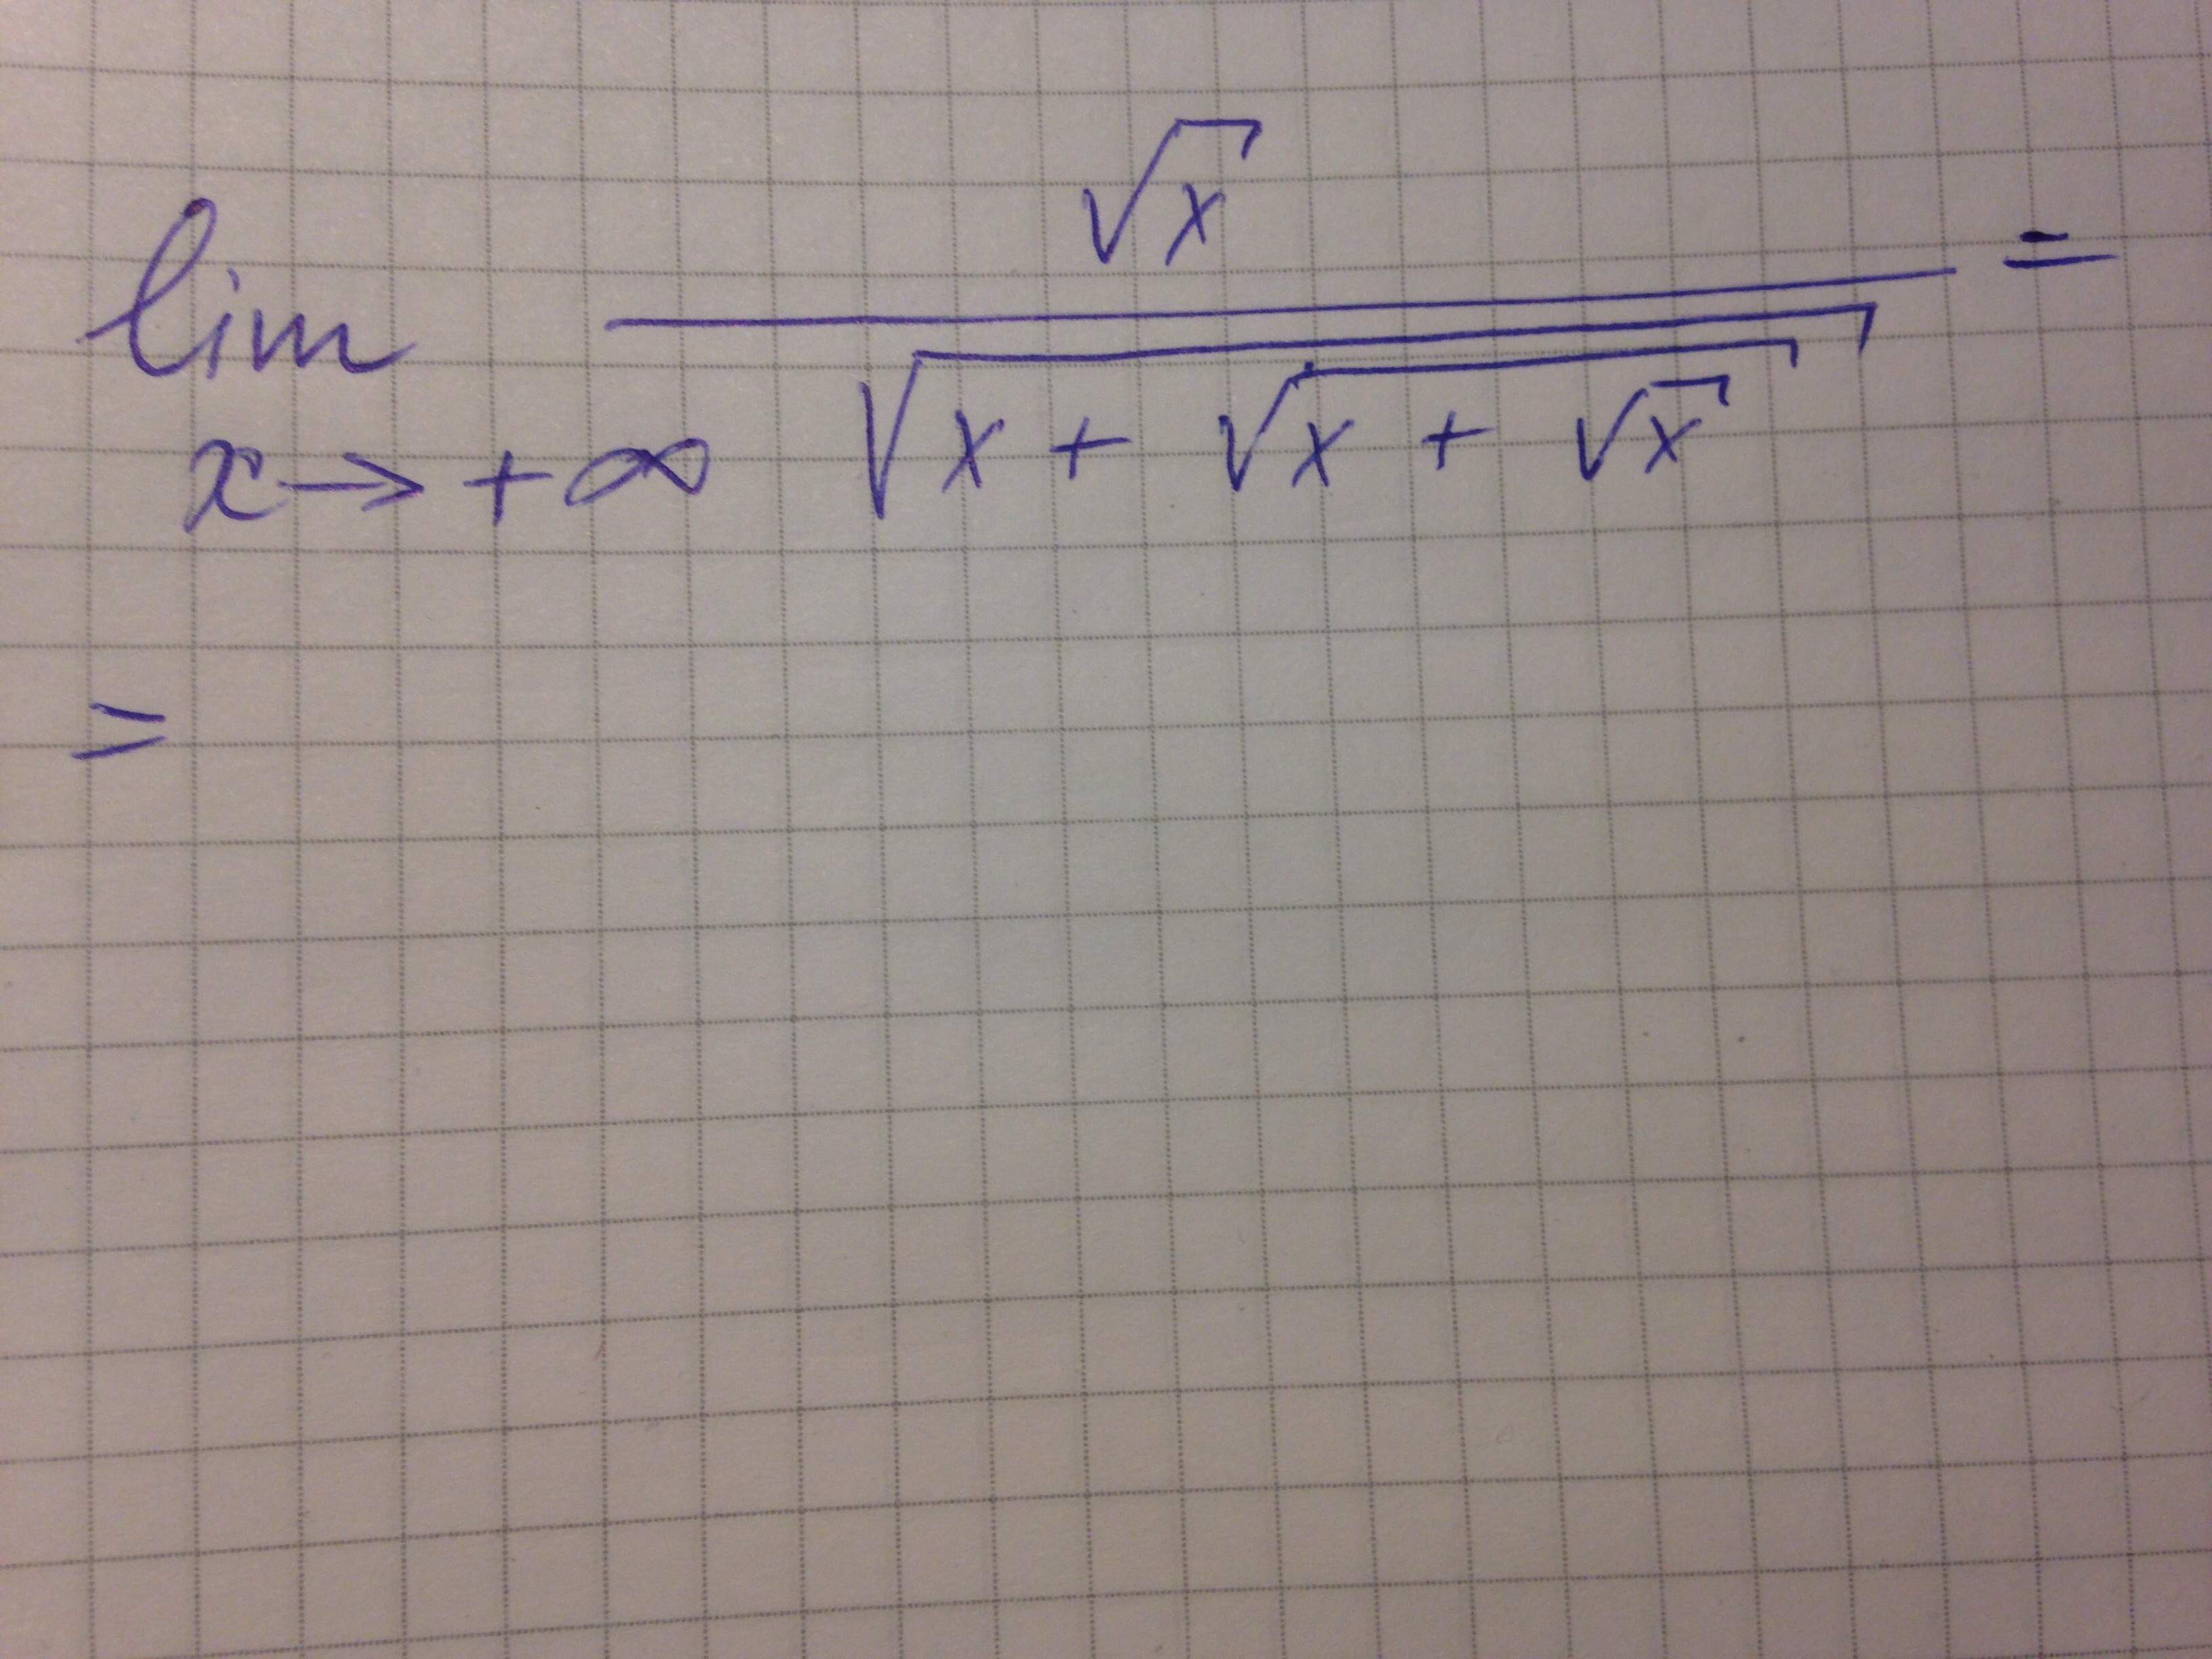 lim √x / √(x + √(x + √x)) =
x → +∞
=